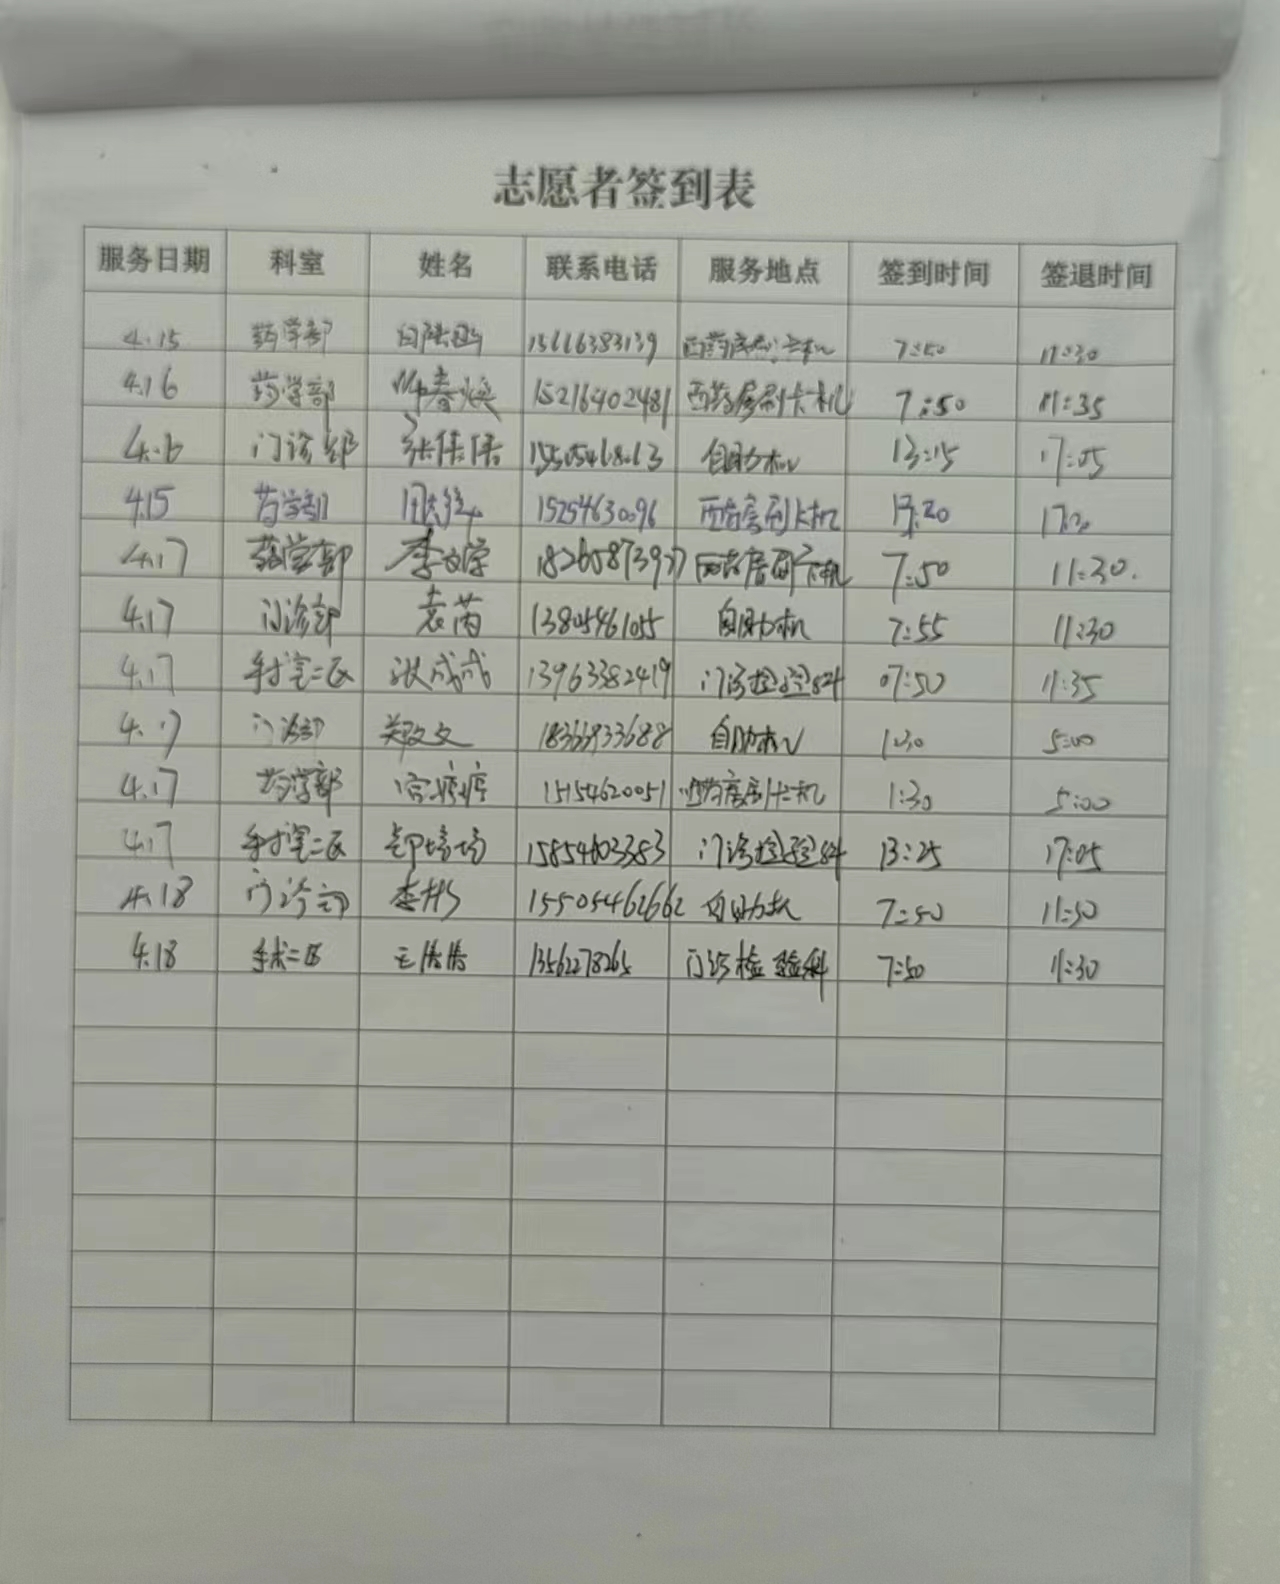 志愿者签到表
服务日期 科室 姓名 联系电话 服务地点 签到时间 签退时间
4.15 药学部 15616383139 西药房刷卡机 7:50 11:30
4.16 药学部 15216402481 西药房刷卡机 7:50 11:35
4.16 门诊部 自助机 13:15 17:05
4.15 药学部 15254630096 西药房刷卡机 17:20
4.17 药学部 李文学 西药房刷卡机 7:50 11:30.
4.17 门诊部 袁芮 13805461055 自助机 7:55 11:30
4.17 手术室二区 张成成 13963382419 门诊检验科 07:50 11:35
4.17 门诊部 郑文文 18366933688 自助机 1:30 5:00
4.17 药学部 宫婷婷 15154620051 西药房刷卡机 1:30 5:00
4.17 手术室二区 15854603383 门诊检验科 13:25 17:05
4.18 门诊部 李彬 15505462662 自助机 7:50 11:30
4.18 手术二区 王倩倩 13562278265 门诊检验科 7:50 11:30